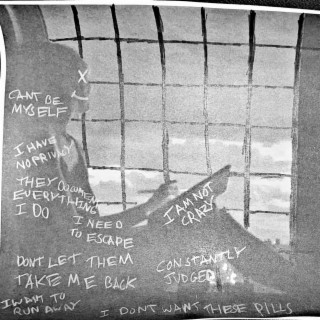 CANT BE
MYSELF
I HAVE
NO PRIVACY
THEY DOCUMENT
EVERYTHING
I DO
I NEED
TO ESCAPE
I AM NOT
CRAZY
DONT LET THEM
TAKE ME BACK
CONSTANTLY
JUDGED
I WANT TO
RUN AWAY
I DONT WANT THESE PILLS